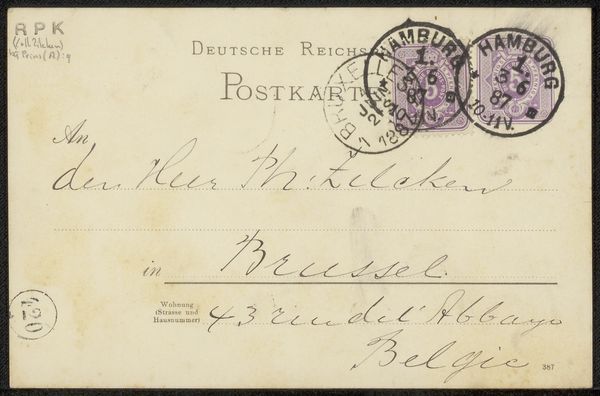 RPK
(Coll Zilcken)
DEUTSCHE REICHS
POSTKARTE
HAMBURG
1.
6
87
HAMBURG
1
6
87
10-11V.
1 BRUXELLES
1887
An
den Heer Ph: Zilcken
in Brussel.
Wohnung
(Strasse und
Hausnummer)
43 rue de l'Abbaye
Belgie
387
420